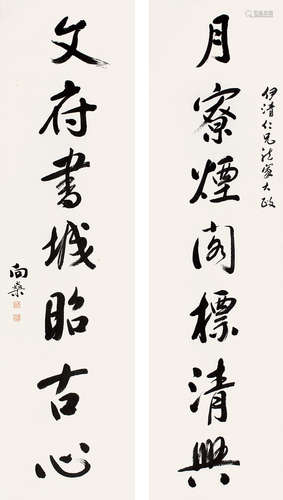 伊清仁兄法家大政
月寮煙閣標清興
文府書城昭古心
向燊